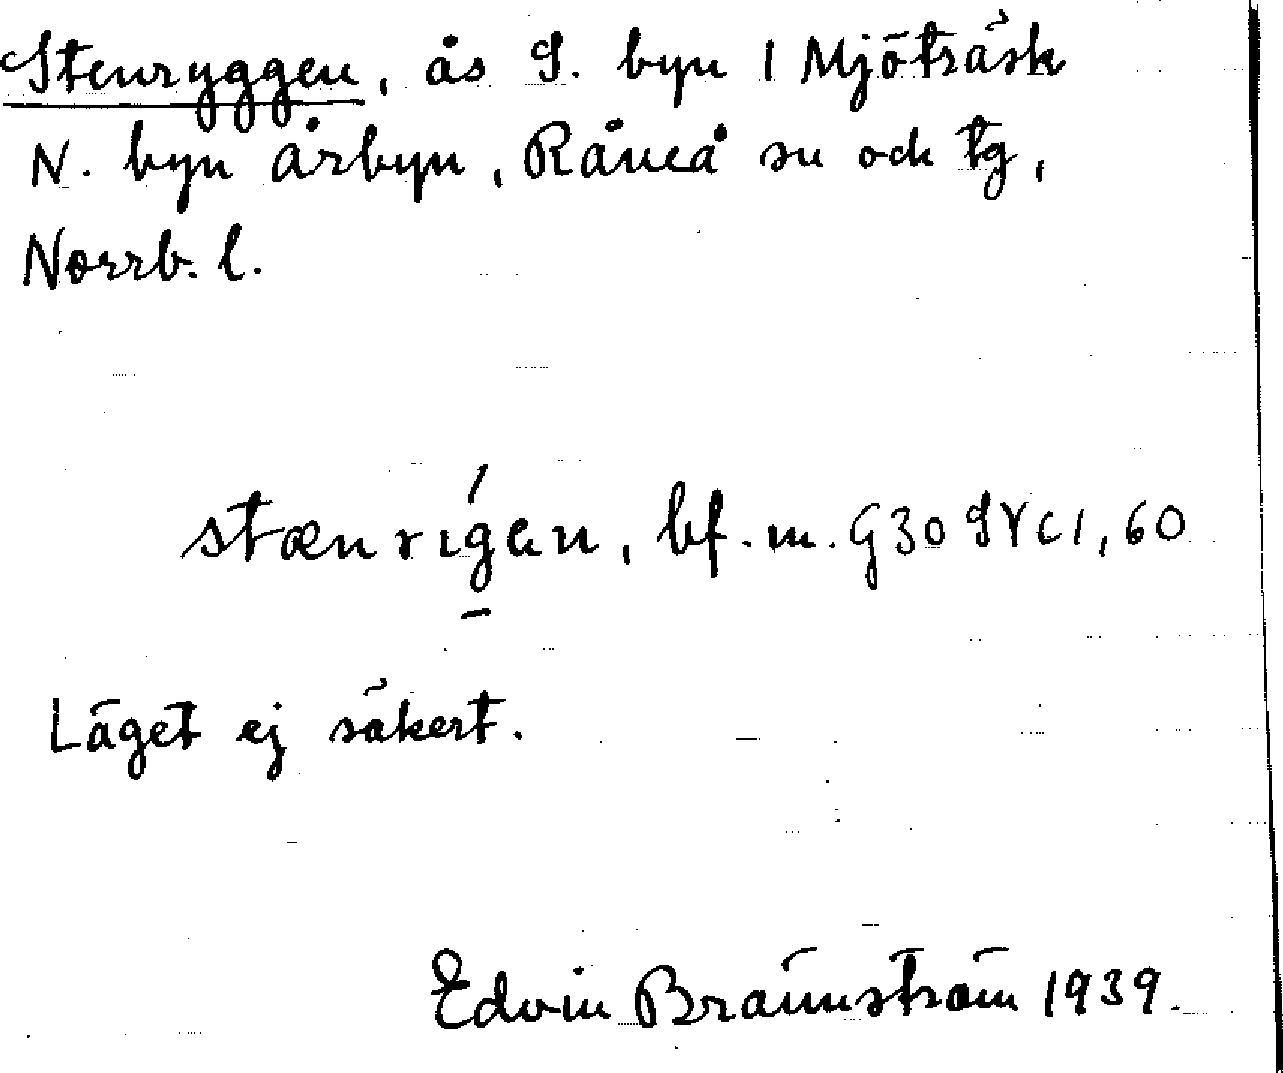 Stenryggen, ås S. byn I Mjöträsk
N. byn Årbyn, Råneå sn och tg,
Norrb. l.
stænrigen, bf. m. G30 SV C1, 60
Läget ej säkert.
Edvin Brännström 1939.